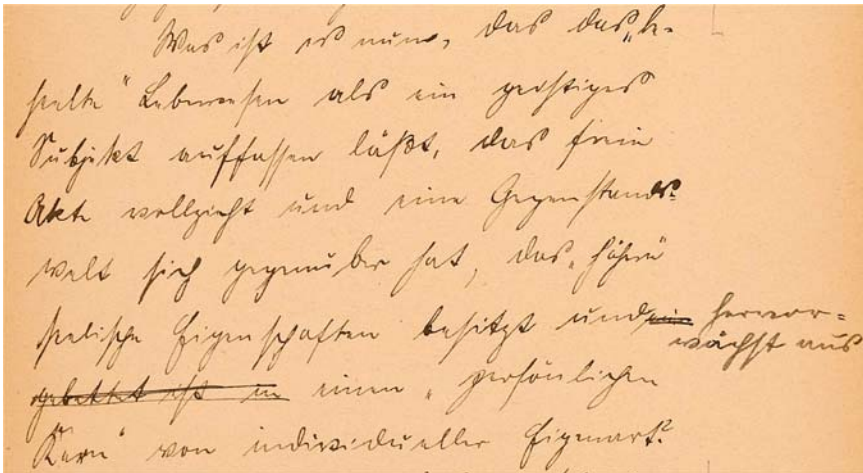 Was ist es nun, das das „be-
seelte“ Lebewesen als ein geistiges
Subjekt auffassen läßt, das freie
Akte vollzieht und eine Gegenstands-
welt sich gegenüber hat, das „höhere“
seelische Eigenschaften besitzt und ein hervor-
wächst aus
gebettet ist in einem „persönlichen
Kern“ von individueller Eigenart?